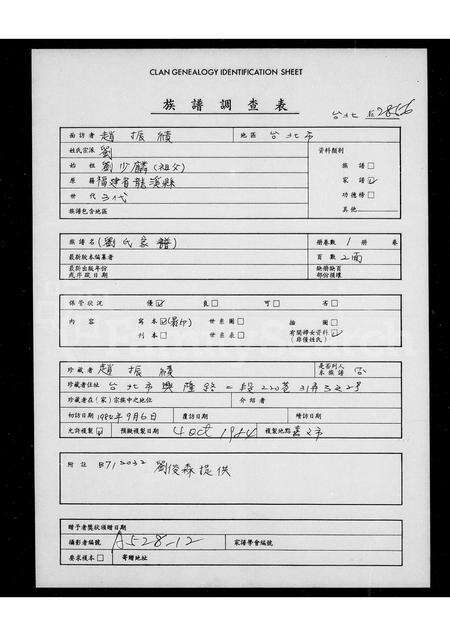 CLAN GENEALOGY IDENTIFICATION SHEET
族譜調查表
台北 2866
面訪者 趙振績 地區 台北市
姓氏宗派 劉 資料類別
始祖 劉少麟(祖父) 族譜□
原籍 福建省龍溪縣 家譜☑
世代 三代 功德榜□
族譜包含地區 其他
族譜名 (劉氏家譜) 冊卷數 1 冊 卷
最新版本編纂者 頁數 2面
最新出版年份 缺冊缺頁
或序跋日期 部份損壞
保管狀況 優☑ 良□ 可□ 否□
內容 寫本☑(影印) 世系圖□ 描圖□
刊本□ 世系表□ 有關婦女資料☑
(非僅姓氏)
珍藏者 趙振績 是否列入本族譜 否
珍藏者住址 台北市興隆路一段220巷31弄
珍藏者在(家)宗族中之地位 介紹者
初訪日期 1984年9月6日 覆訪日期 續訪日期
允許複製☑ 預擬複製日期 4 Oct 1984 複製地點
附註 劉俊森提供
贈予者獎狀頒贈日期
攝影者編號 A528-12 宗譜學會編號
要求複本□ 寄贈地址